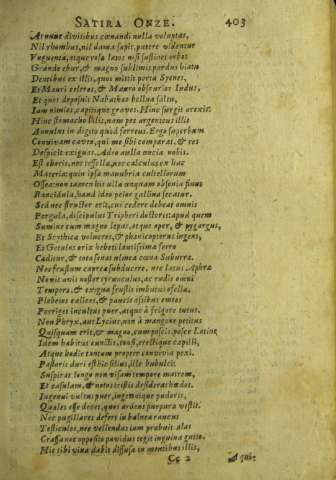 SATIRA ONZE. 403
At nunc divitibus cœnandi nulla voluptas,
Nil rhombus, nil dama sapit, putere videntur
Vnguenta, atque rosæ latos nisi sustinet orbes
Grande ebur, & magno sublimis pardus hiatu
Dentibus ex illis, quos mittit porta Syenes,
Et Mauri celeres, & Mauro obscurior Indus,
Et quos deposuit Nabathæo bellua saltu,
Iam nimios, capitique graves. Hinc surgit orexis,
Hinc stomacho bilis, nam pes argenteus illis
Annulus in digito quod ferreus. Ergo superbum
Convivam caveo, qui me sibi comparat, & res
Despicit exiguas. Adeo nulla uncia nobis
Est eboris, nec tessellæ, nec calculus ex hac
Materia: quin ipsa manubria cultellorum
Ossea: non tamen his ulla unquam obsonia fiunt
Rancidula, haud ideo pejor gallina secatur.
Sed nec structor erit, cui cedere debeat omnis
Pergula, discipulus Trypheri doctoris: apud quem
Sumine cum magno lepus, atque aper, & pygargus,
Et Scythicæ volucres, & phœnicopterus ingens,
Et Getulus oryx hebeti lautissima ferro
Cæditur, & tota sonat ulmea cœna Suburra.
Nec frustum capreæ subducere, nec latus Aphræ
Novit avis noster tyrunculus, ac rudis omni
Tempore, & exiguæ frustis imbutus ofellæ.
Plebeios calices, & paucis assibus emtos
Porriget incultus puer, atque à frigore tutus.
Non Phryx, aut Lycius, non à mangone petitus
Quisquam erit, & magno, cum posces, posce Latinè.
Idem habitus cunctis, tonsi, rectique capilli,
Atque hodie tantum propter convivia pexi.
Pastoris duri est hic filius, ille bubulci:
Suspirat longo non visam tempore matrem,
Et casulam, & notos tristis desiderat hædos.
Ingenui vultus puer, ingenuique pudoris,
Quales esse decet, quos ardens purpura vestit.
Nec pugillares defert in balnea raucus
Testiculos, nec vellendas iam præbuit alas
Crassa nec opposito pavidus tegit inguina gutto.
Hic tibi vina dabit diffusa in montibus illis,
Cc 2